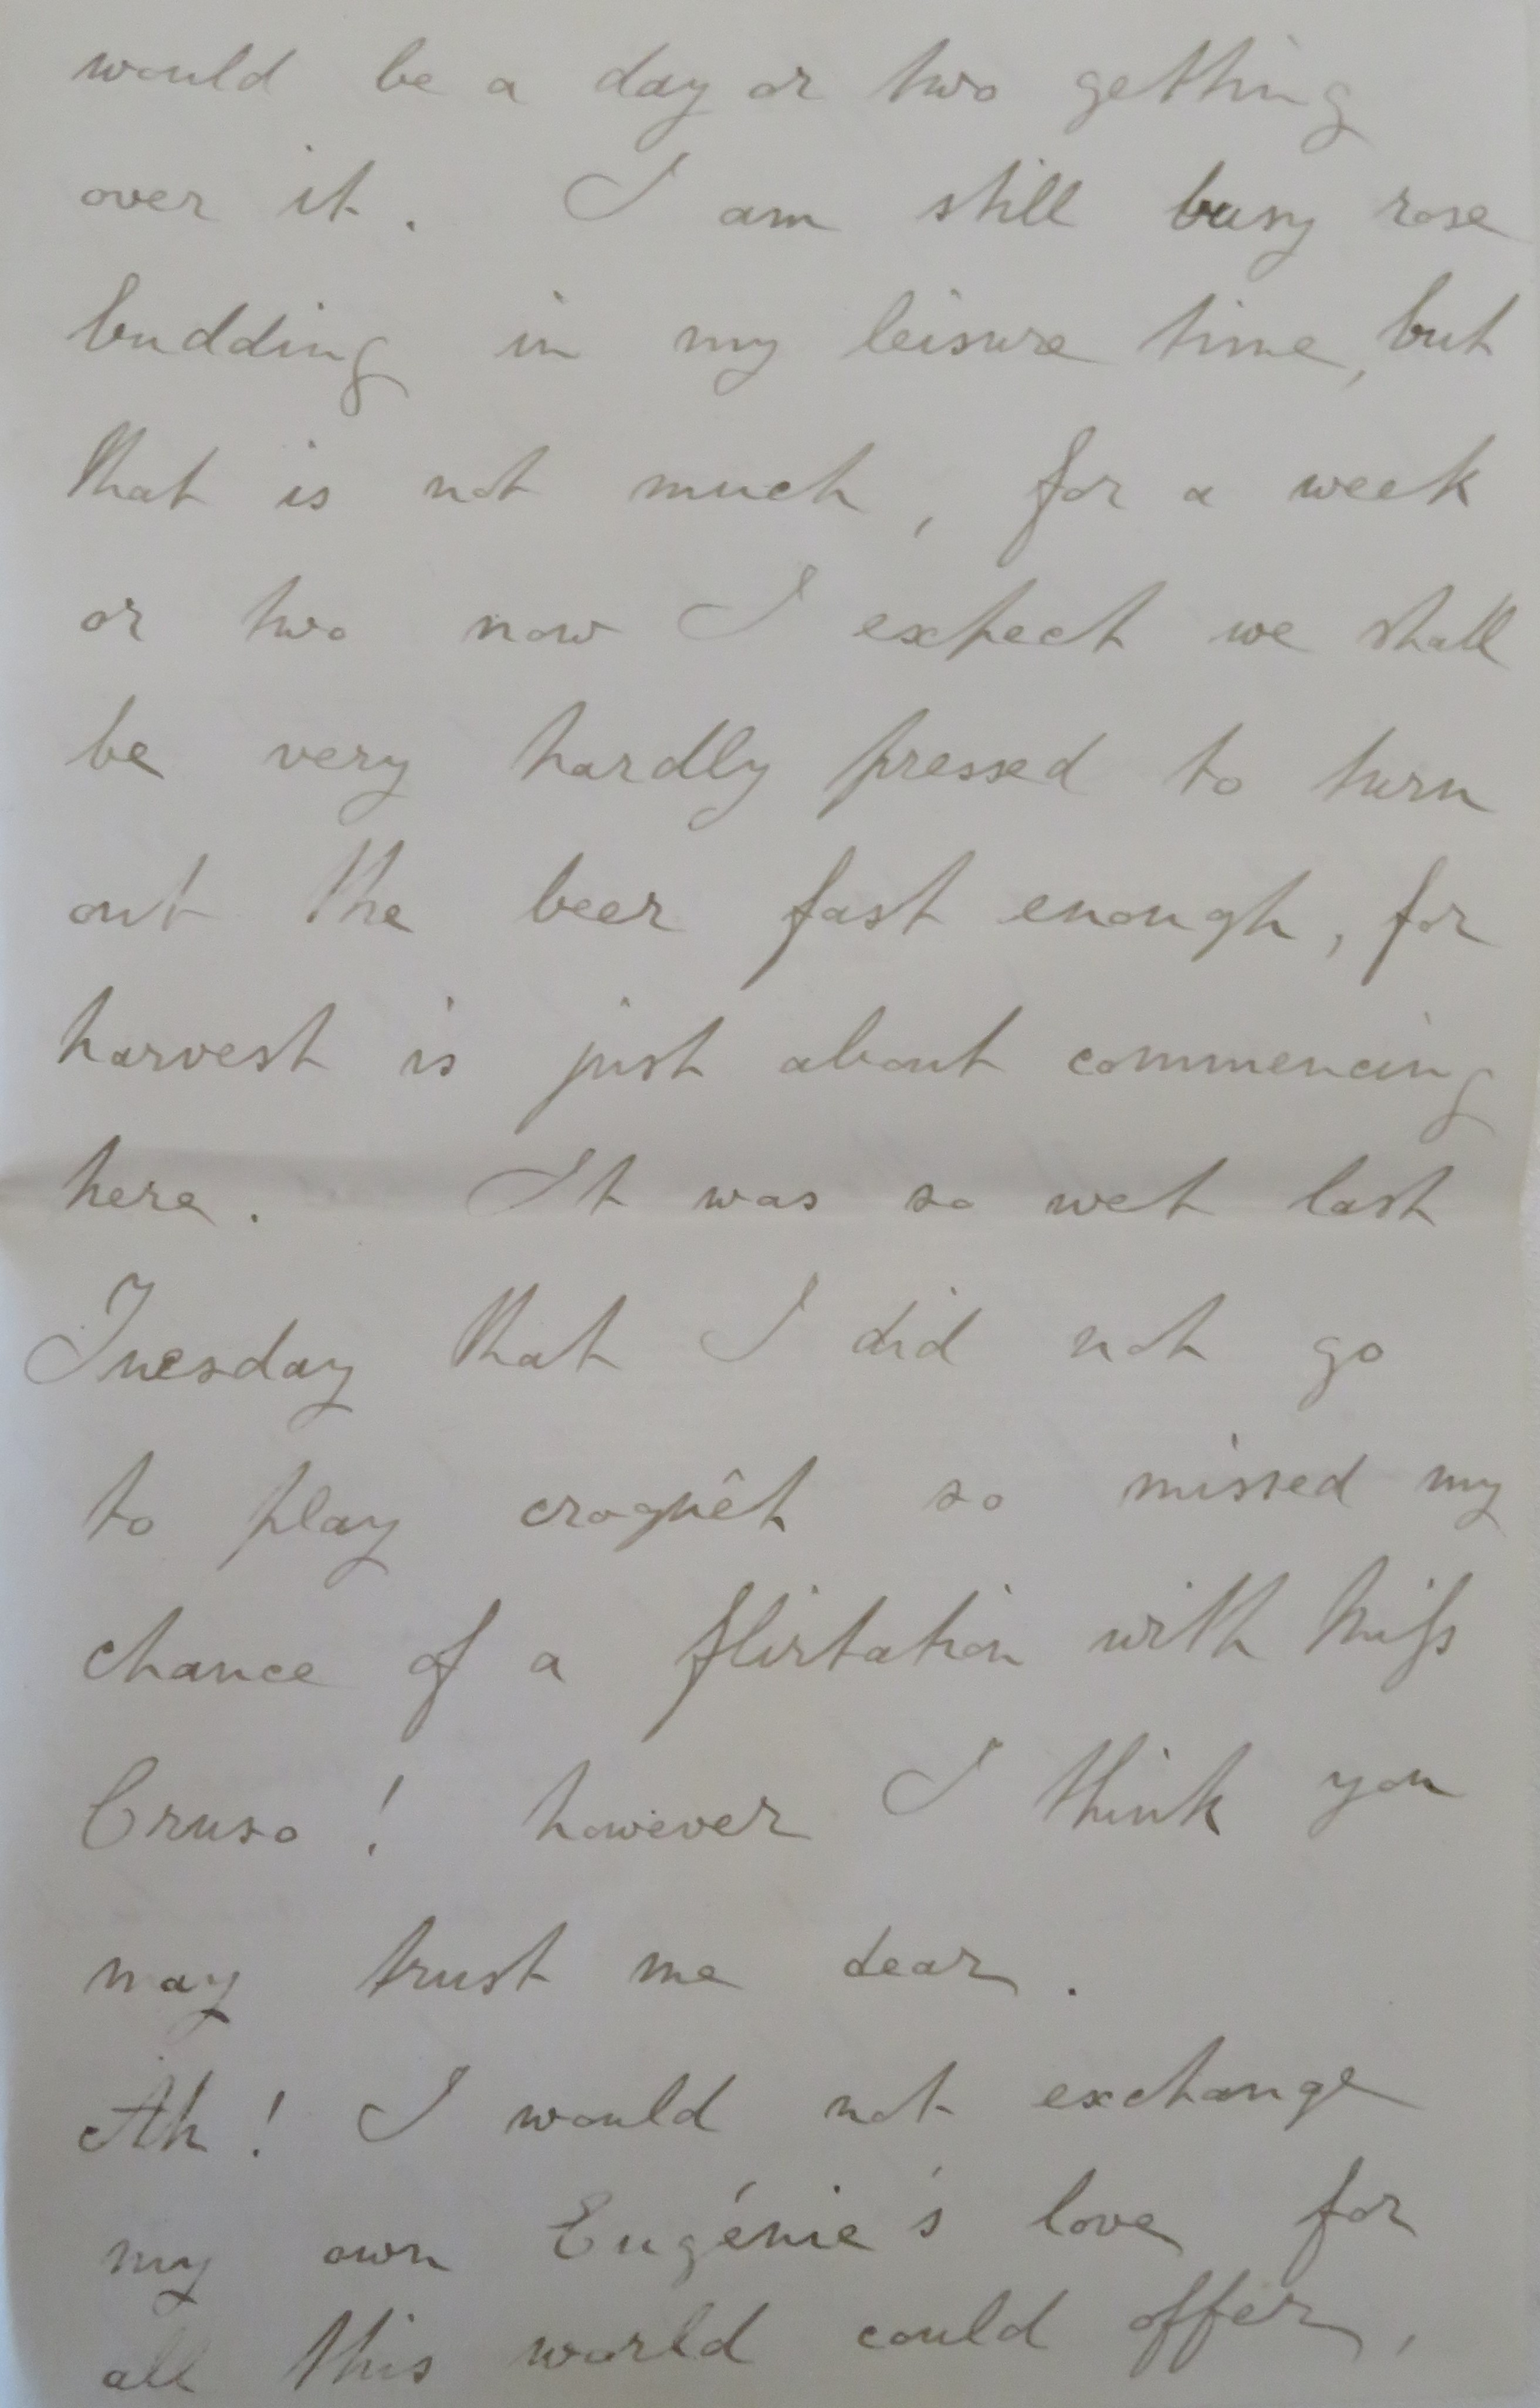 would be a day or two getting
over it. I am still busy rose
budding in my leisure time, but
that is not much, for a week
or two now I expect we shall
be very hardly pressed to turn
out the beer fast enough, for
harvest is just about commencing
here. It was so wet last
Tuesday that I did not go
to play croquêt so missed my
chance of a flirtation with Miſs
Cruso! however I think you
may trust me dear.
Ah! I would not exchange
my own Eugénie's love for
all this world could offer,